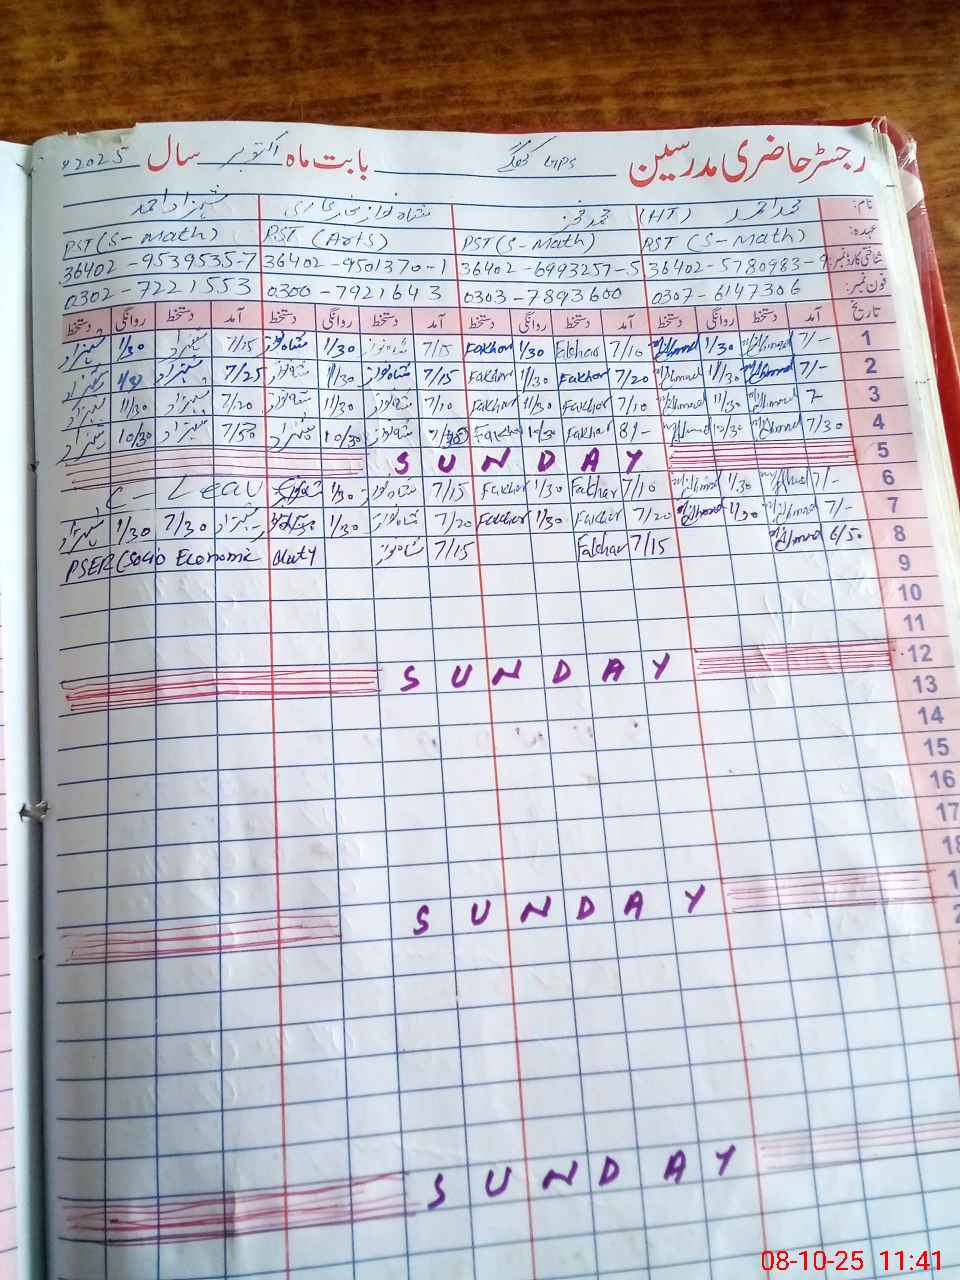 رجسٹر حاضری مدرسین GPS بابت ماہ اکتوبر سال 2025ء
نام: محمد احمد (HT) محمد فخر شہزاد احمد
عہدہ: PST (S-Math) PST (S-Math) PST (Arts) PST (S-Math)
شناختی کارڈ نمبر: 36402-5780983-9 36402-6993257-5 36402-9501370-1 36402-9539535-7
فون نمبر: 0307-6147306 0303-7893600 0300-7921643 0302-7221553
تاریخ آمد دستخط روانگی دستخط آمد دستخط روانگی دستخط آمد دستخط روانگی دستخط آمد دستخط روانگی دستخط
1 7/- M/Ahmad 1/30 M/Ahmad 7/10 Fakhar 1/30 Fakhar 7/15 شاہنواز 1/30 شاہنواز 7/15 شہزاد 1/30 شہزاد
2 7/- M/Ahmad 1/30 M/Ahmad 7/20 Fakhar 1/30 Fakhar 7/15 شاہنواز 1/30 شاہنواز 7/25 شہزاد 1/30 شہزاد
3 M/Ahmad 11/30 M/Ahmad 7/10 Fakhar 11/30 Fakhar 7/10 شاہنواز 11/30 شاہنواز 7/20 شہزاد 11/30 شہزاد
4 7/30 M/Ahmad 12/30 M/Ahmad 8/- Fakhar Fakhar شاہنواز 10/30 7/50 شہزاد 10/30 شہزاد
5 SUNDAY
6 7/- M/Ahmad 1/30 M/Ahmad 7/10 Fakhar 1/30 Fakhar 7/15 شاہنواز 1/30 C-Leav
7 7/- M/Ahmad 1/30 M/Ahmad 7/20 Fakhar 1/30 Fakhar 7/20 شاہنواز 1/30 شہزاد 7/30 1/30 شہزاد
8 6/50 M/Ahmad 7/15 Fakhar 7/15 شاہنواز PSER (Socio Economic duty
9
10
11
12 SUNDAY
13
14
15
16
17
18
1
2
SUNDAY
SUNDAY
08-10-25 11:41